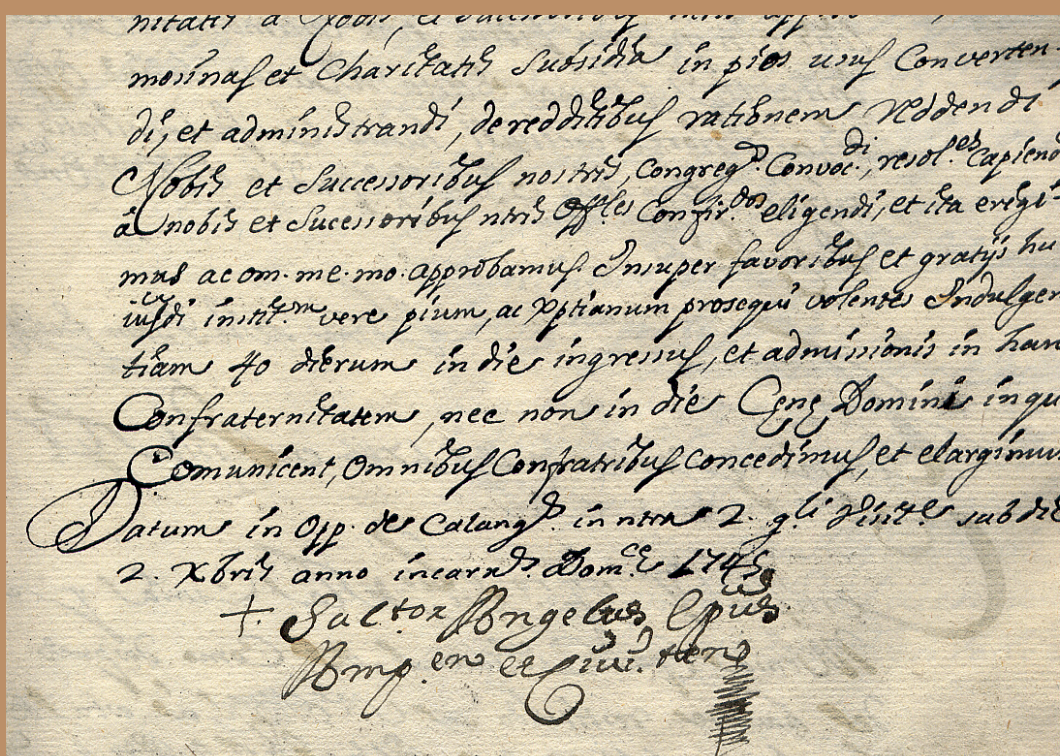 nitatis a
mosinas et Charitatis Subsidia in pios usus Converten
di, et administrandi, de redditibus rationem reddendi
Nobis et Successoribus nostris, Congreg.s Convoc.di, resol.es Capiend
â nobis et Sucessoribus ntris Off.les Confir.dos eligendi, et ita erigi-
mus ac om. me. mo. approbamus. Insuper favoribus et gratijs hu
iusdi instit.m vere pium, ac Xptianum prosequi volentes Indulgen
tiam 40 dierum in die ingressus, et admissionis in han
Confraternitatem, nec non in die Cęnę Domini in qu
Comunicent, Omnibus Confratribus concedimus, et elargimur
Datum in Opp. de Calang.s in ntra 2. g.li Visit.e sub die
2. Xbris anno incarn.s Dom.ce 1745
+ Saltor Angelus Epus
Amp.en et Civi.ten